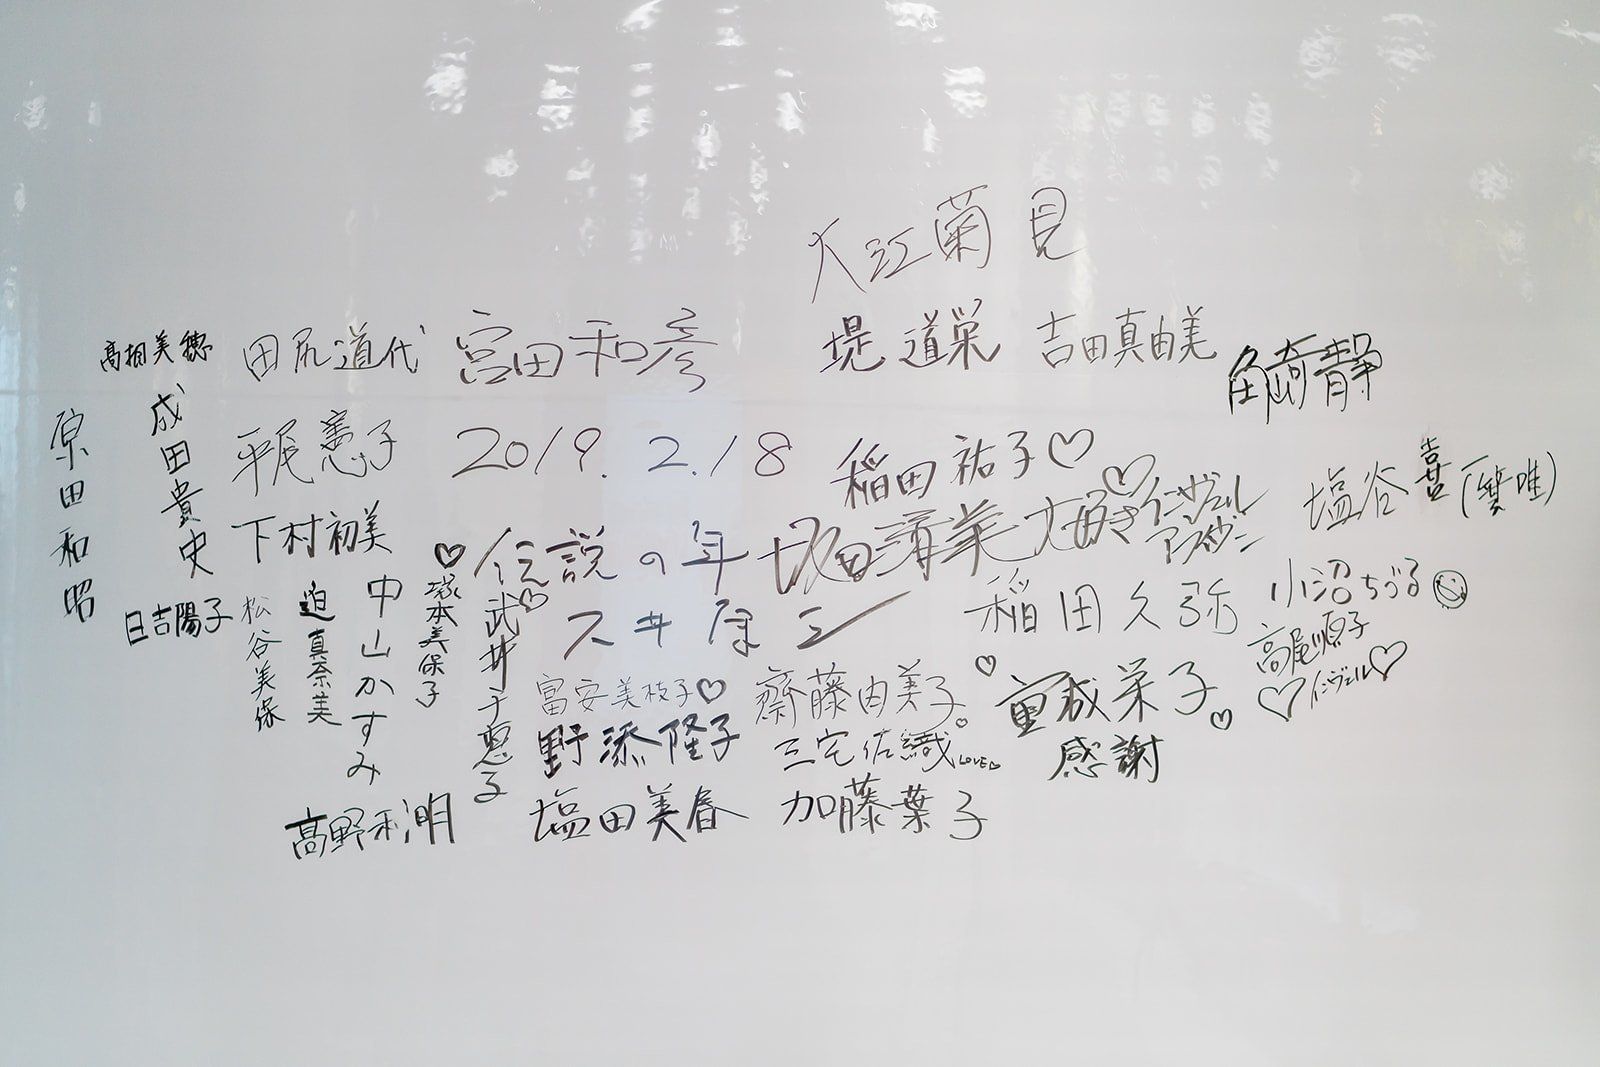 大江菊見
高桐美穂
田尻道代
宮田和彦
堤 道栄
吉田真由美
角崎静
原田和昭
成田貴史
平尾憲子
2019. 2. 18
稲田祐子♡
塩谷
下村初美
伝説の年
大好き♡
インヴェル
日吉陽子
松谷美保
迫真奈美
中山かすみ
♡塚本美保子
武井千恵子
稲田久弥
小沼ちづる
高尾順子
インヴェル♡
富安美枝子♡
齋藤由美子
重成栄子♡
感謝
野添隆子
三宅佐織 LOVE♡
高野利明
塩田美春
加藤葉子